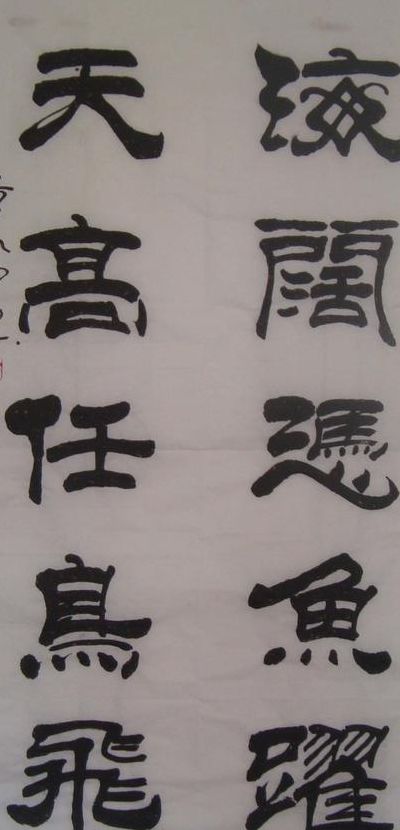 海闊憑魚躍
天高任鳥飛